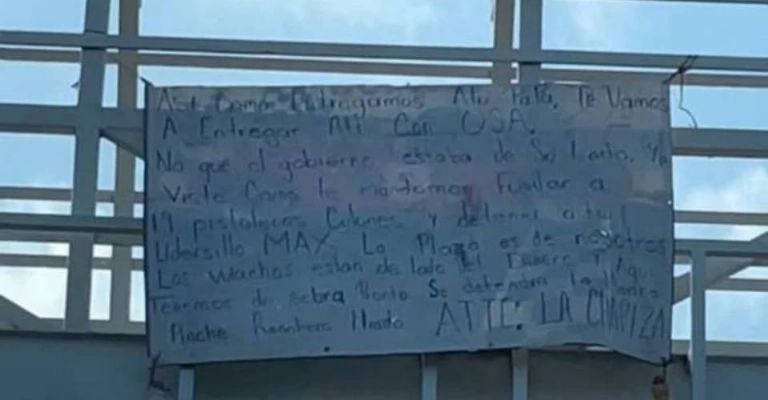 Asi Como Entregamos A tu Papa, Te Vamos
A Entregar A ti Con USA.
No que el gobierno estaba de Su Lado, Ya
Viste Como le mandamos Fusilar a
19 pistoleros Culones y detener a tu
Lidersillo MAY. La Plaza es de nosotros
Los Wachos estan de lado y Aqui
Tenemos de sobra
ATTE: LA CHAPIZA